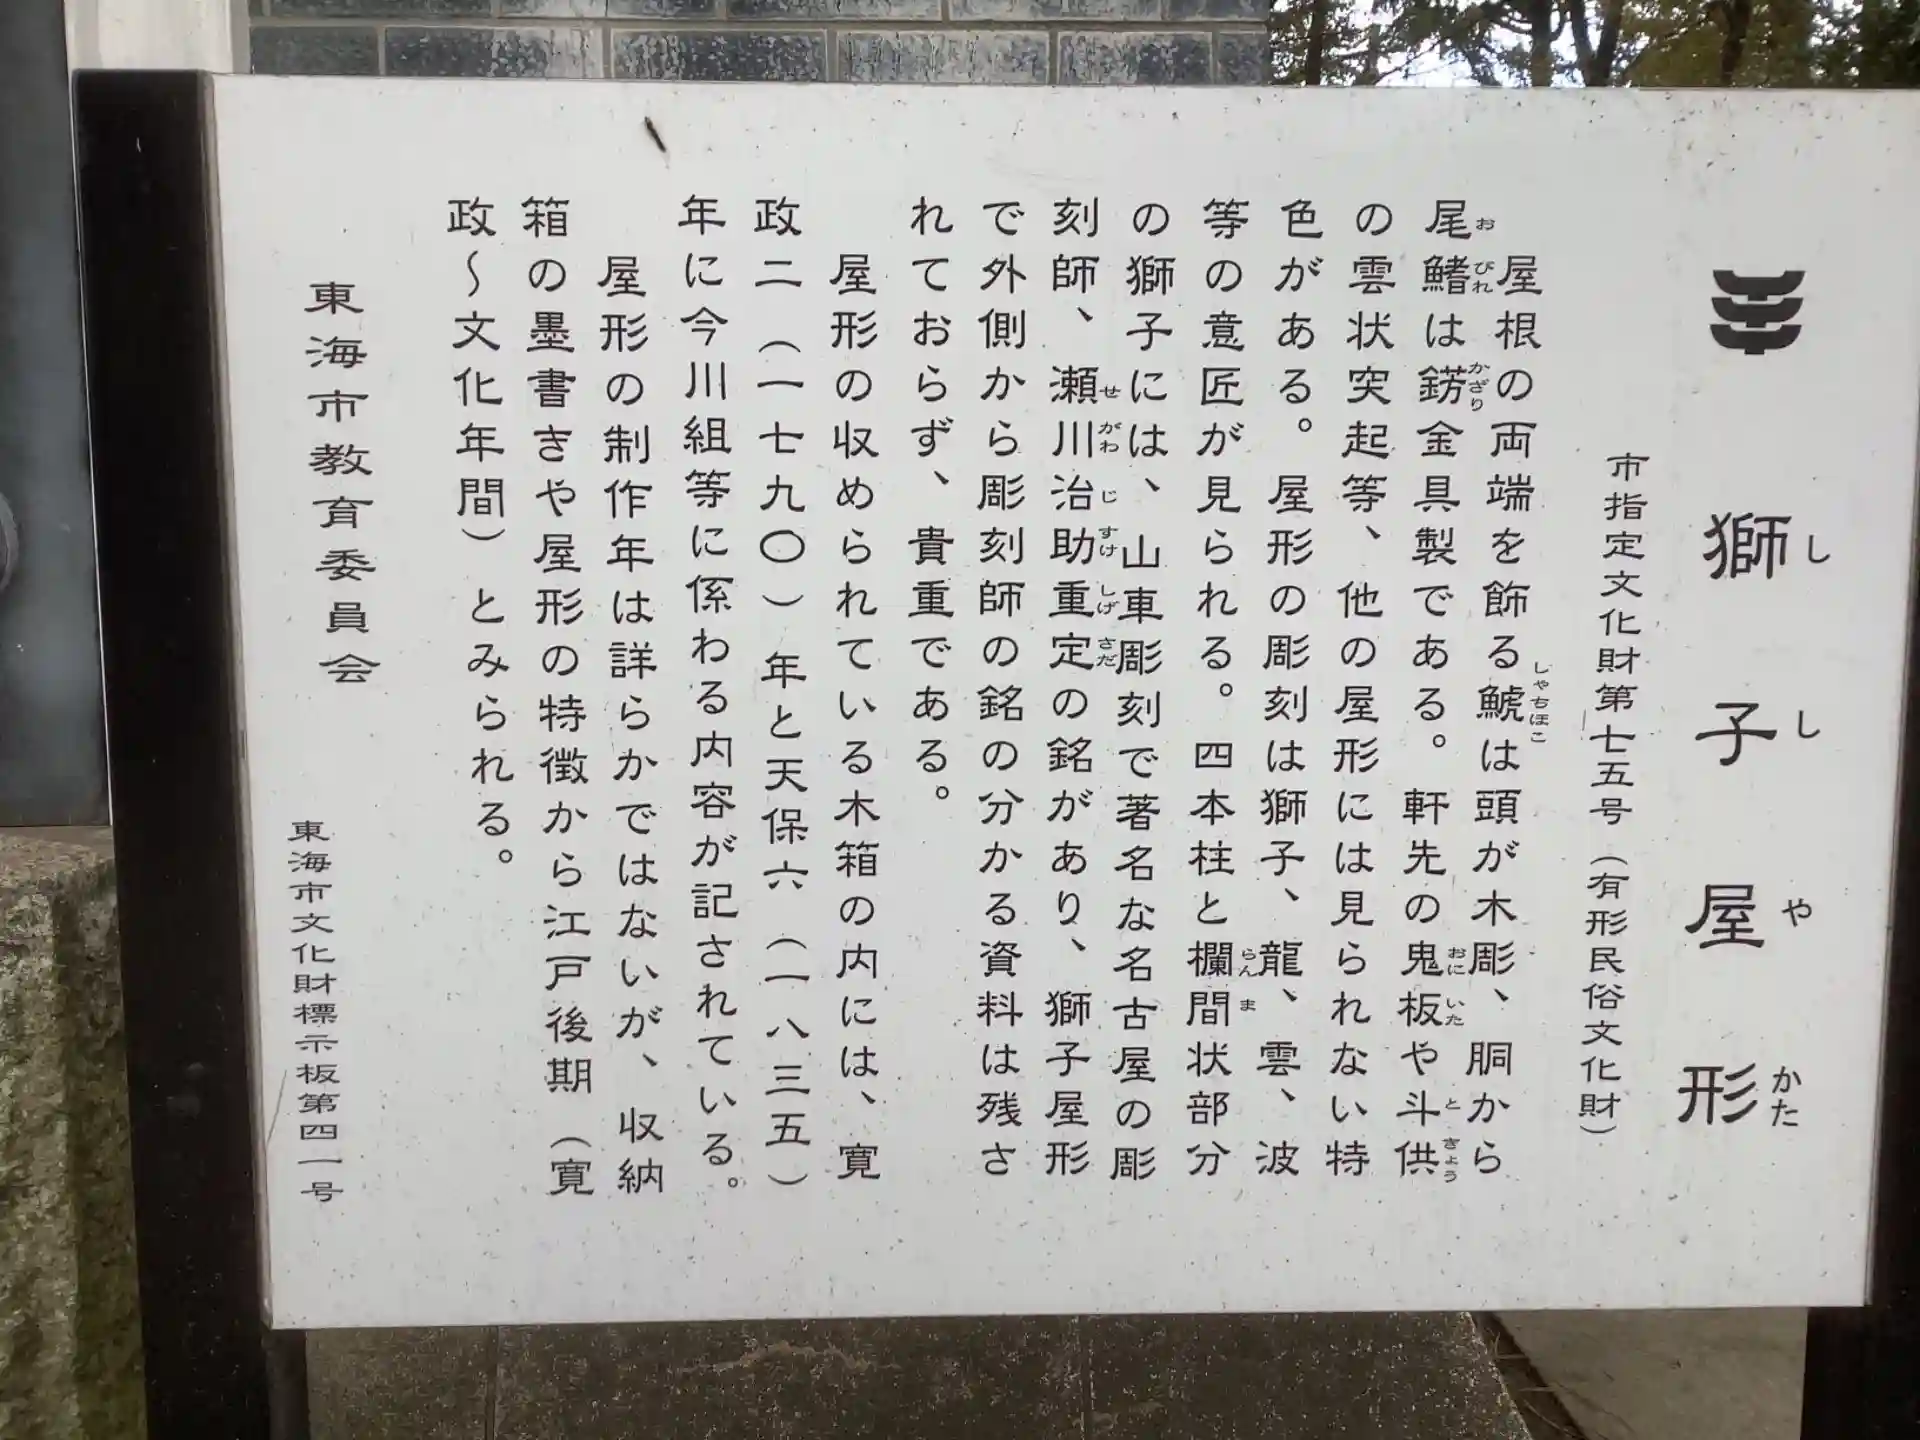 獅子屋形
しし や かた
市指定文化財第七五号(有形民俗文化財)
屋根の両端を飾る鯱は頭が木彫、胴から
しゃちほこ
尾鰭は錺金具製である。軒先の鬼板や斗供
お びれ かざり おに いた と きょう
の雲状突起等、他の屋形には見られない特
色がある。屋形の彫刻は獅子、龍、雲、波
等の意匠が見られる。四本柱と欄間状部分
らん ま
の獅子には、山車彫刻で著名な名古屋の彫
刻師、瀬川治助重定の銘があり、獅子屋形
せ がわ じ すけ しげ さだ
で外側から彫刻師の銘の分かる資料は残さ
れておらず、貴重である。
屋形の収められている木箱の内には、寛
政二(一七九〇)年と天保六(一八三五)
年に今川組等に係わる内容が記されている。
屋形の制作年は詳らかではないが、収納
箱の墨書きや屋形の特徴から江戸後期(寛
政〜文化年間)とみられる。
東海市教育委員会
東海市文化財標示板第四一号